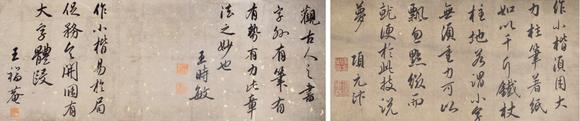 作小楷須用大
力柱筆著紙
如以千斤鐵杖
柱地若謂小字
無須重力可以
飄忽點綴而
就便於此技説
夢 項元汴
觀古人之書
字外有筆有
有勢有力此章
法之妙也
王時敏
作小楷易於局
促務令開闊有
大字體段
王福庵